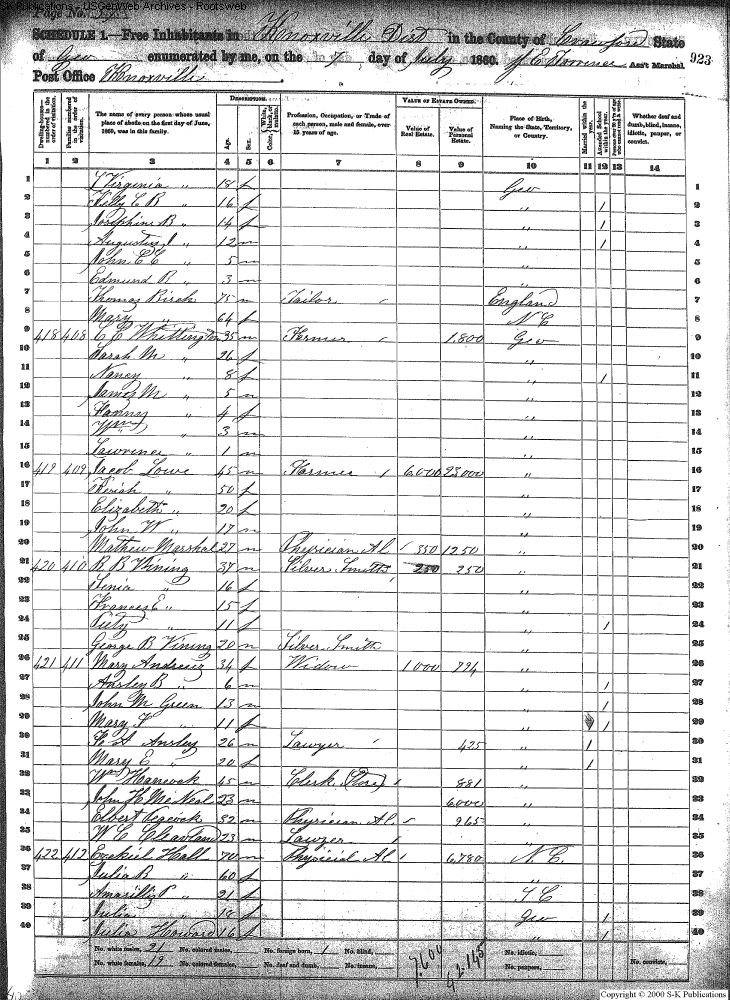 S-K Publications - USGenWeb Archives - Rootsweb
Page No.
SCHEDULE 1.—Free Inhabitants in Knoxville Dist in the County of Crawford State
of Geo enumerated by me, on the day of July 1860. Ass't Marshal
923
Post Office Knoxville
Dwelling-houses numbered in the order of visitation.
Families numbered in the order of visitation.
The name of every person whose usual place of abode on the first day of June, 1860, was in this family.
DESCRIPTION.
Age.
Sex.
Color, White, black, or mulatto.
Profession, Occupation, or Trade of each person, male and female, over 15 years of age.
VALUE OF ESTATE OWNED.
Value of Real Estate.
Value of Personal Estate.
Place of Birth, Naming the State, Territory, or Country.
Married within the year.
Attended School within the year.
Whether deaf and dumb, blind, insane, idiotic, pauper, or convict.
1 2 3 4 5 6 7 8 9 10 11 12 13 14
1 Virginia " 18 f Geo 1
2 16 f " / 2
3 Josephine B " 14 f " / 3
4 Augustus J " 12 m " / 4
5 John " 5 m " 5
6 Edmund B " 3 m " 6
7 Thomas Birch 75 m Tailor / England 7
8 Mary " 64 f N C 8
9 418 408 Whittington 35 m Farmer / 1.800 Geo 9
10 Sarah M " 26 f " 10
11 Nancy " 8 f " / 11
12 James M " 5 m " 12
13 Fanny " 4 f " 13
14 Wm " 3 m " 14
15 Lawrence " 1 m " 15
16 419 409 Jacob Lowe 45 m Farmer / 6.000 23.000 " 16
17 " 50 f " 17
18 Elizabeth " 20 f " 18
19 John W " 17 m " 19
20 Mathew Marshal 27 m Physician Al / 350 1250 " 20
21 420 410 R B Vining 37 m Silver Smith / 250 250 " 21
22 " 16 f " 22
23 Frances E " 15 f " 23
24 " 11 f " / 24
25 George B Vining 20 m Silver Smith " 25
26 421 411 Mary Andrews 34 f Widow 1000 794 " 26
27 Ansley B " 6 m " / 27
28 John M Green 13 m " / 28
29 Mary F " 11 f " / 29
30 Ansley 26 m Lawyer / 425 " / 30
31 Mary E " 20 f " / 31
32 Wm Hancock 45 m Clerk (Store) / 881 " 32
33 John H McNeal 23 m 6000 " 33
34 Elbert Peacock 32 m Physician Al / 965 " 34
35 W C Cleavland 23 m Lawyer / " 35
36 422 412 Ezekiel Hall 70 m Physician Al / 6,780 N. C. 36
37 Julia B " 60 f " 37
38 Amarilly P " 21 f S C 38
39 Julia " 18 f Geo / 39
40 Julia Howard 16 f " / 40
No. white males, 21 No. colored males, No. foreign born, 1 No. blind, No. idiotic, No. convicts,
No. white females, 19 No. colored females, No. deaf and dumb, No. insane, No. paupers,
7.600
42.145
Copyright © 2000 S-K Publications